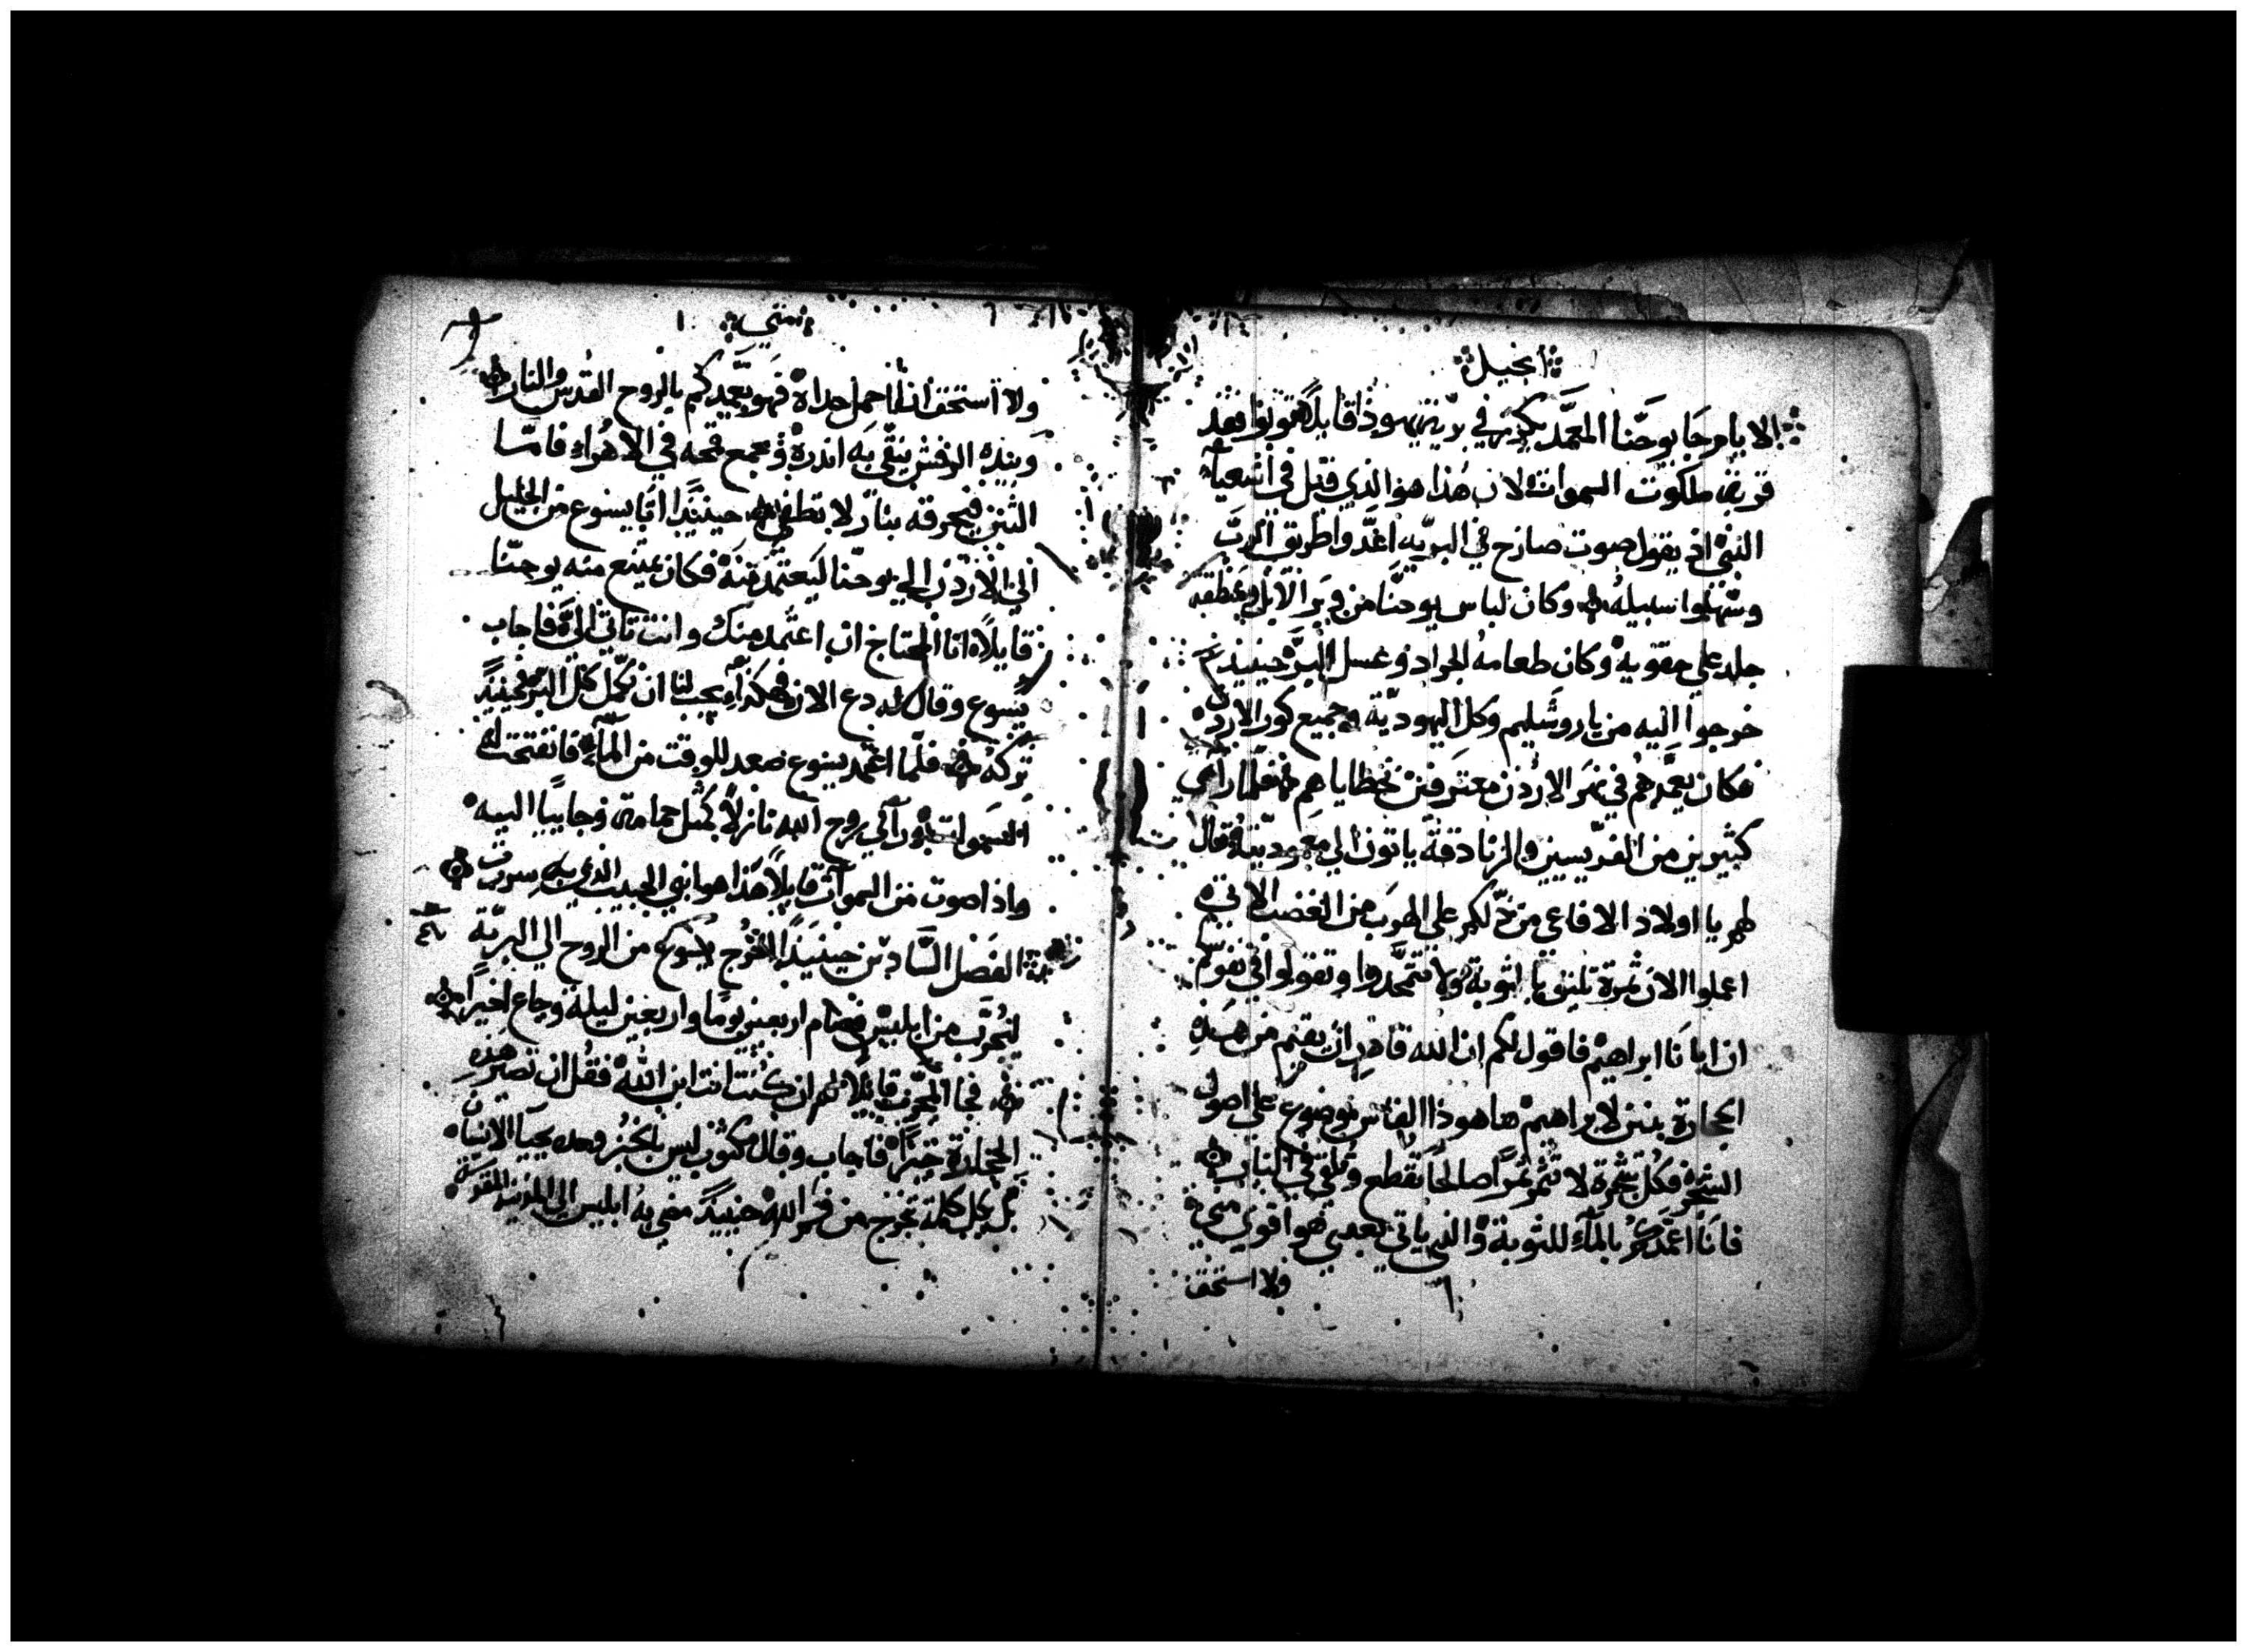 انجيل
الايام جا يوحنا المعمد يكرز في برية يهوذا قايلاً توبوا فقد
قربت ملكوت السموات لان هذا هو الذي قيل في اشعياء
النبي اذ يقول صوت صارخ في البريّه اعدّوا طريق الربّ
وسهلوا سبيله وكان لباس يوحنا من وبر الابل ومنطقة
جلد علي حقويه وكان طعامه الجراد وعسل البرّ حينيذ
خرجوا اليه من ياروشليم وكل اليهوديّة وجميع كور الاردن
فكان يعمّدهم في نهر الاردن معترفين بخطاياهم فلما راي
كثيرين من الفريسيين والزنادقة ياتون الي معموديته قال
لهم يا اولاد الافاعي من دلّكم علي الهرب من الغضب الاتي
اعملوا الان ثمرة تليق بالتوبة ولا وتقولوا في نفوسكم
ان ابانا ابراهيم فاقول لكم ان الله قادر ان يقيم من هذه
الحجارة بنين لابراهيم ها هوذا الفاس موضوع علي اصول
الشجر فكل شجرة لا تثمر ثمراً صالحاً تقطع وتلقي في النار
فانا اعمّدكم بالماء للتوبة والذي ياتي بعدي هو اقوي مني
ولا استحق
متي
ولا استحق ان احمل حداه فهو يعمّدكم بالروح القدس والنار
وبيده الرفش ينقّي به اندره ويجمع قمحه في الاهراء فامّا
التبن فيحرقه بنار لا تطفي حينيذاً اتا يسوع من الجليل
الي الاردن الي يوحنّا ليعتمد منه فكان يمتنع منه يوحنّا
قايلاً انا المحتاج ان اعتمد منك وانت تاتي اليّ فاجاب
يسوع وقال له دع الان فهكذا يجب لنا ان نكمّل كل البرّ فحينيذٍ
تركه فلمّا اعتمد يسوع صعد للوقت من الماء فانفتحت له
السموات وراي روح الله نازلاً كمثل حمامه وجاييا اليه
واذا صوت من السموات قايلاً هذا هو ابني الحبيب الذي به سررت
الفصل السادس حينيذاً اخرج يسوع من الروح الي البريّة
ليجرّب من ابليس فصام اربعين يوماً واربعين ليلة وجاع اخيراً
فجا المجرّب قايلا لهم ان كنت انت ابن الله فقل ان تصير هذه
الحجارة خبزاً فاجاب وقال مكتوب ليس بالخبز وحده يحيا الانسان
بل بكل كلمة تخرج من فم الله حينيذٍ مضي به ابليس الي المدينة المقدسة